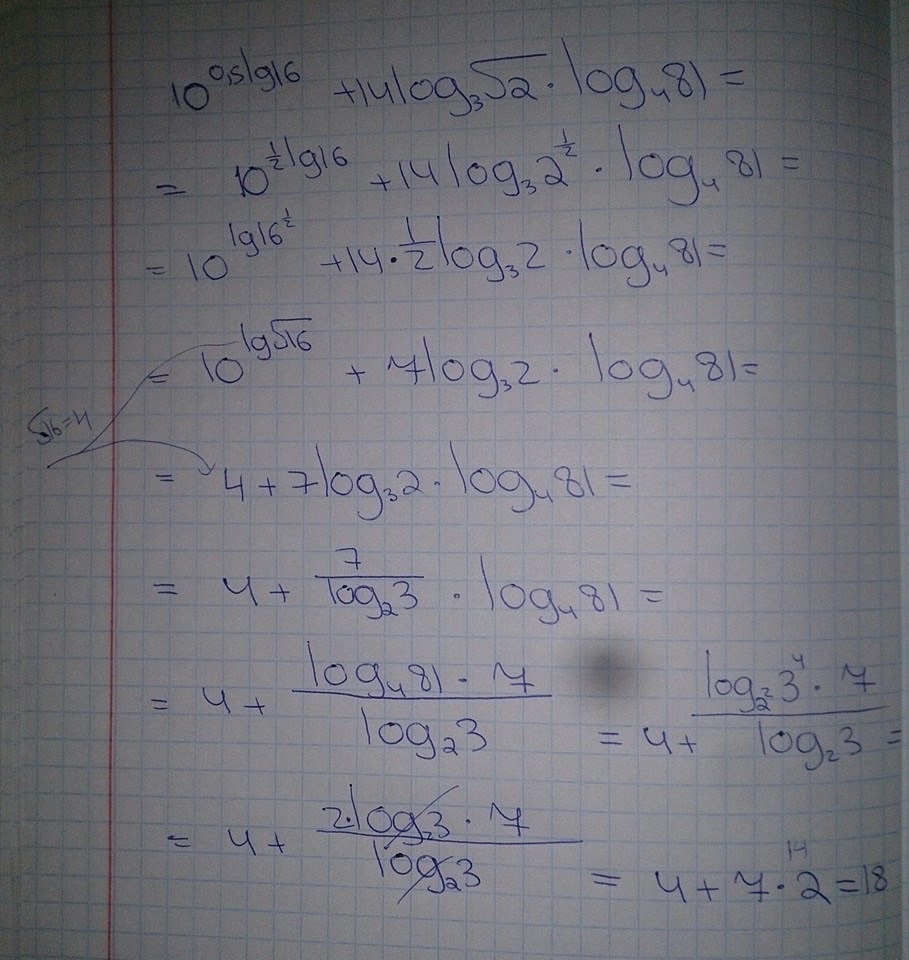 10^{0,5lg16} + 14log₃√2 · log₄81 =
= 10^{½lg16} + 14log₃2^{½} · log₄81 =
= 10^{lg16^{½}} + 14 · ½log₃2 · log₄81 =
= 10^{lg√16} + 7log₃2 · log₄81 =
√16=4
= 4 + 7log₃2 · log₄81 =
= 4 + 7/log₂3 · log₄81 =
= 4 + (log₄81 · 7)/(log₂3) = 4 + (log_{2²}3⁴ · 7)/(log₂3) =
= 4 + (2·log₂3 · 7)/(log₂3) = 4 + 7·2 = 18
14